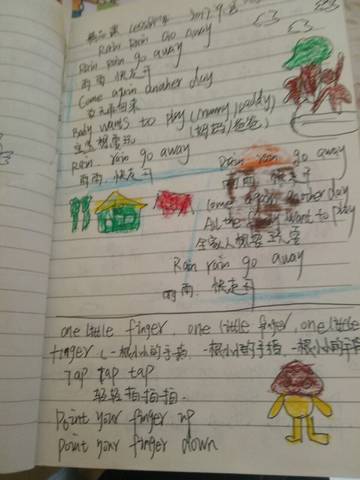 Rain Rain Go away
Rain Rain go away
雨雨 快走开
Come again another day
Baby wants to play (mummy/daddy)
宝宝想要玩 (妈妈/爸爸)
Rain rain go away
雨雨 快走开
Rain rain go away
雨雨 快走开
Come again another day
All the family want to play
全家人想要玩耍
Rain rain go away
雨雨 快走开
one little finger, one little finger, one little
finger (一根小小的手指, 一根小小的手指, 一根小小的手指
Tap tap tap
轻轻拍拍拍.
Point your finger up
Point your finger down